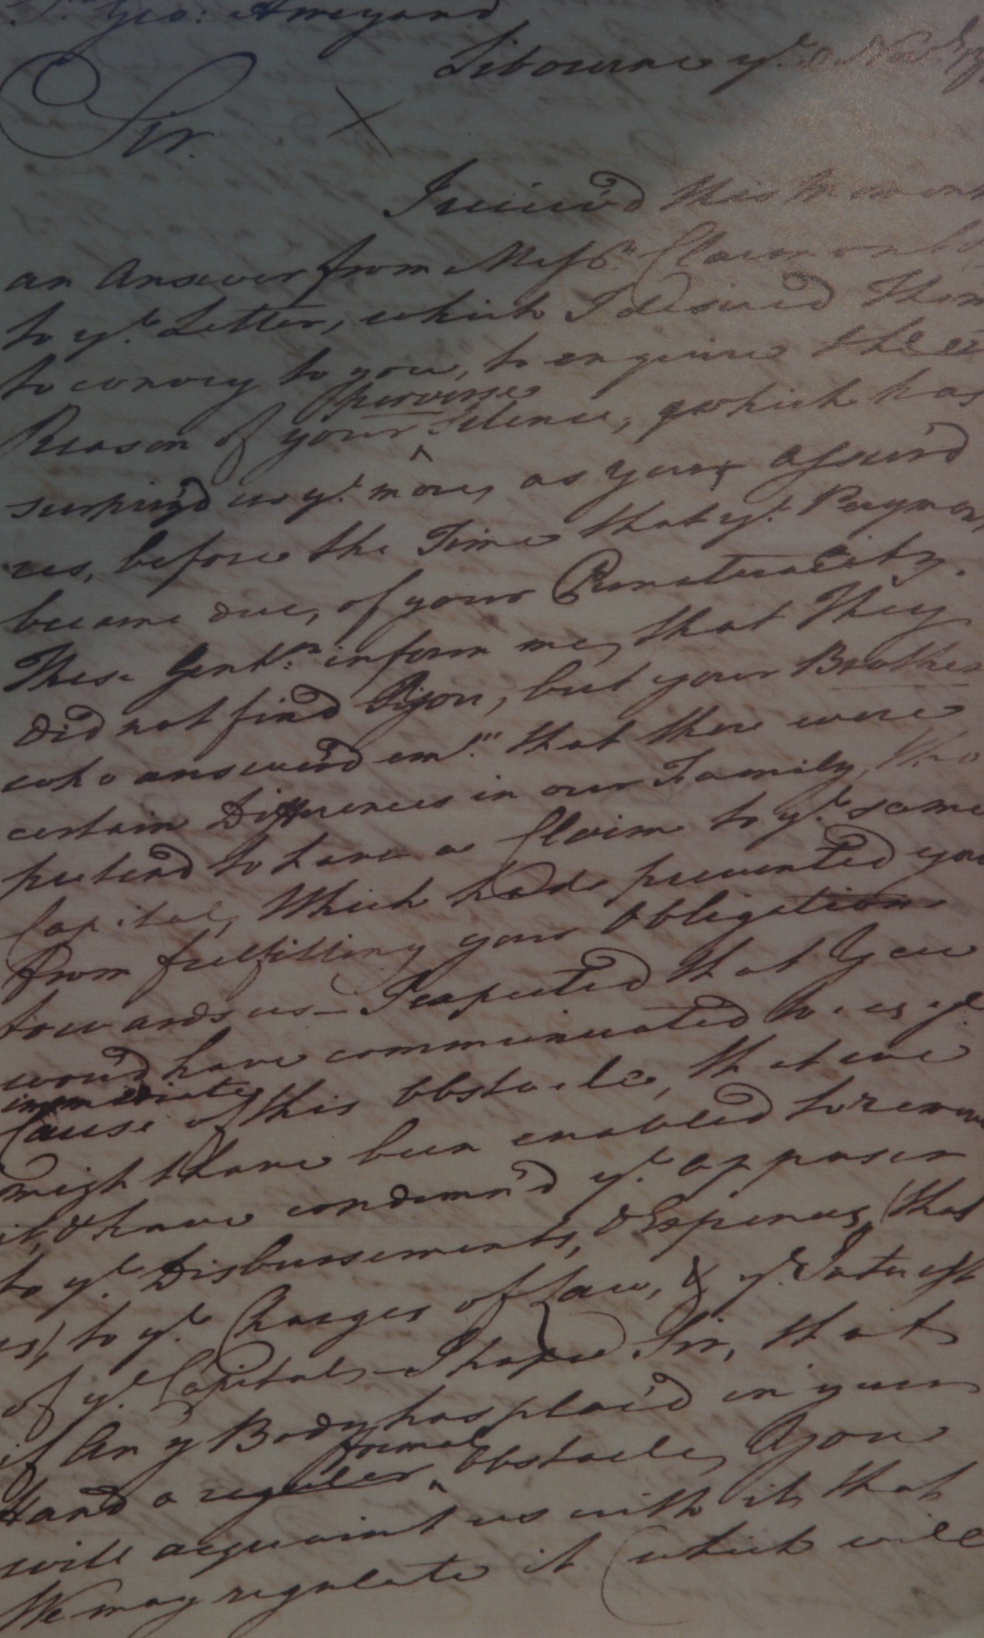 Geo: Amyand
Libourne ye. 8 Novr.
Sir
I receiv'd this Moment
an Answer from Messrs.
to ye. Letter, which I desired them
to convey to you, to enquire the
perverse
Reason of your Silence, which has
surpriz'd us ye. more, as you assur'd
us, before the Time that ye. Paymen
became due, of your Punctuality.
These Gentn. inform me, that They
did not find you, but your Brother
who answer'd em." that there were
certain Differences in our Family, who
pretend to have a Claim to ye. same
Capital, Which had prevented you
from fulfilling your Obligations
towards us— I expected that You
wou'd have communicated to us ye.
immediate
Cause of this obstacle, that we
might have been enabled to remove
it, & have condemn'd ye. opposer
to ye. Disbursements, & Expences, (that
is) to ye. Charges of Law, & ye. Interest
of ye. Capital— I hope Sir, that
if Any Body has plac'd in your
formal
hand a regular obstacle, you
will acquaint us with it, that
We may regulate it (which will